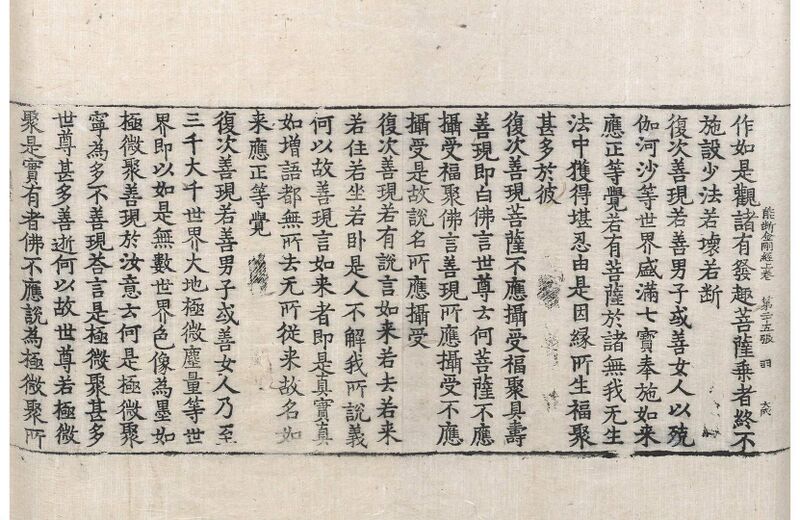 能斷金剛經上卷 第廿五張 羽
作如是觀諸有發趣菩薩乗者終不
施設少法若壞若断
復次善現若善男子或善女人以殑
伽河沙等世界盛滿七寶奉施如来
應正等覺若有菩薩於諸無我无生
法中獲得堪忍由是因縁所生福聚
甚多於彼
復次善現菩薩不應攝受福聚具壽
善現即白佛言世尊云何菩薩不應
攝受福聚佛言善現所應攝受不應
攝受是故說名所應攝受
復次善現若有說言如来若去若来
若住若坐若卧是人不解我所說義
何以故善現言如来者即是真實真
如增語都無所去无所從来故名如
来應正等覺
復次善現若善男子或善女人乃至
三千大千世界大地極微塵量等世
界即以如是無數世界色像為墨如
極微聚善現於汝意云何是極微聚
寧為多不善現荅言是極微聚甚多
世尊甚多善逝何以故世尊若極微
聚是實有者佛不應說為極微聚所